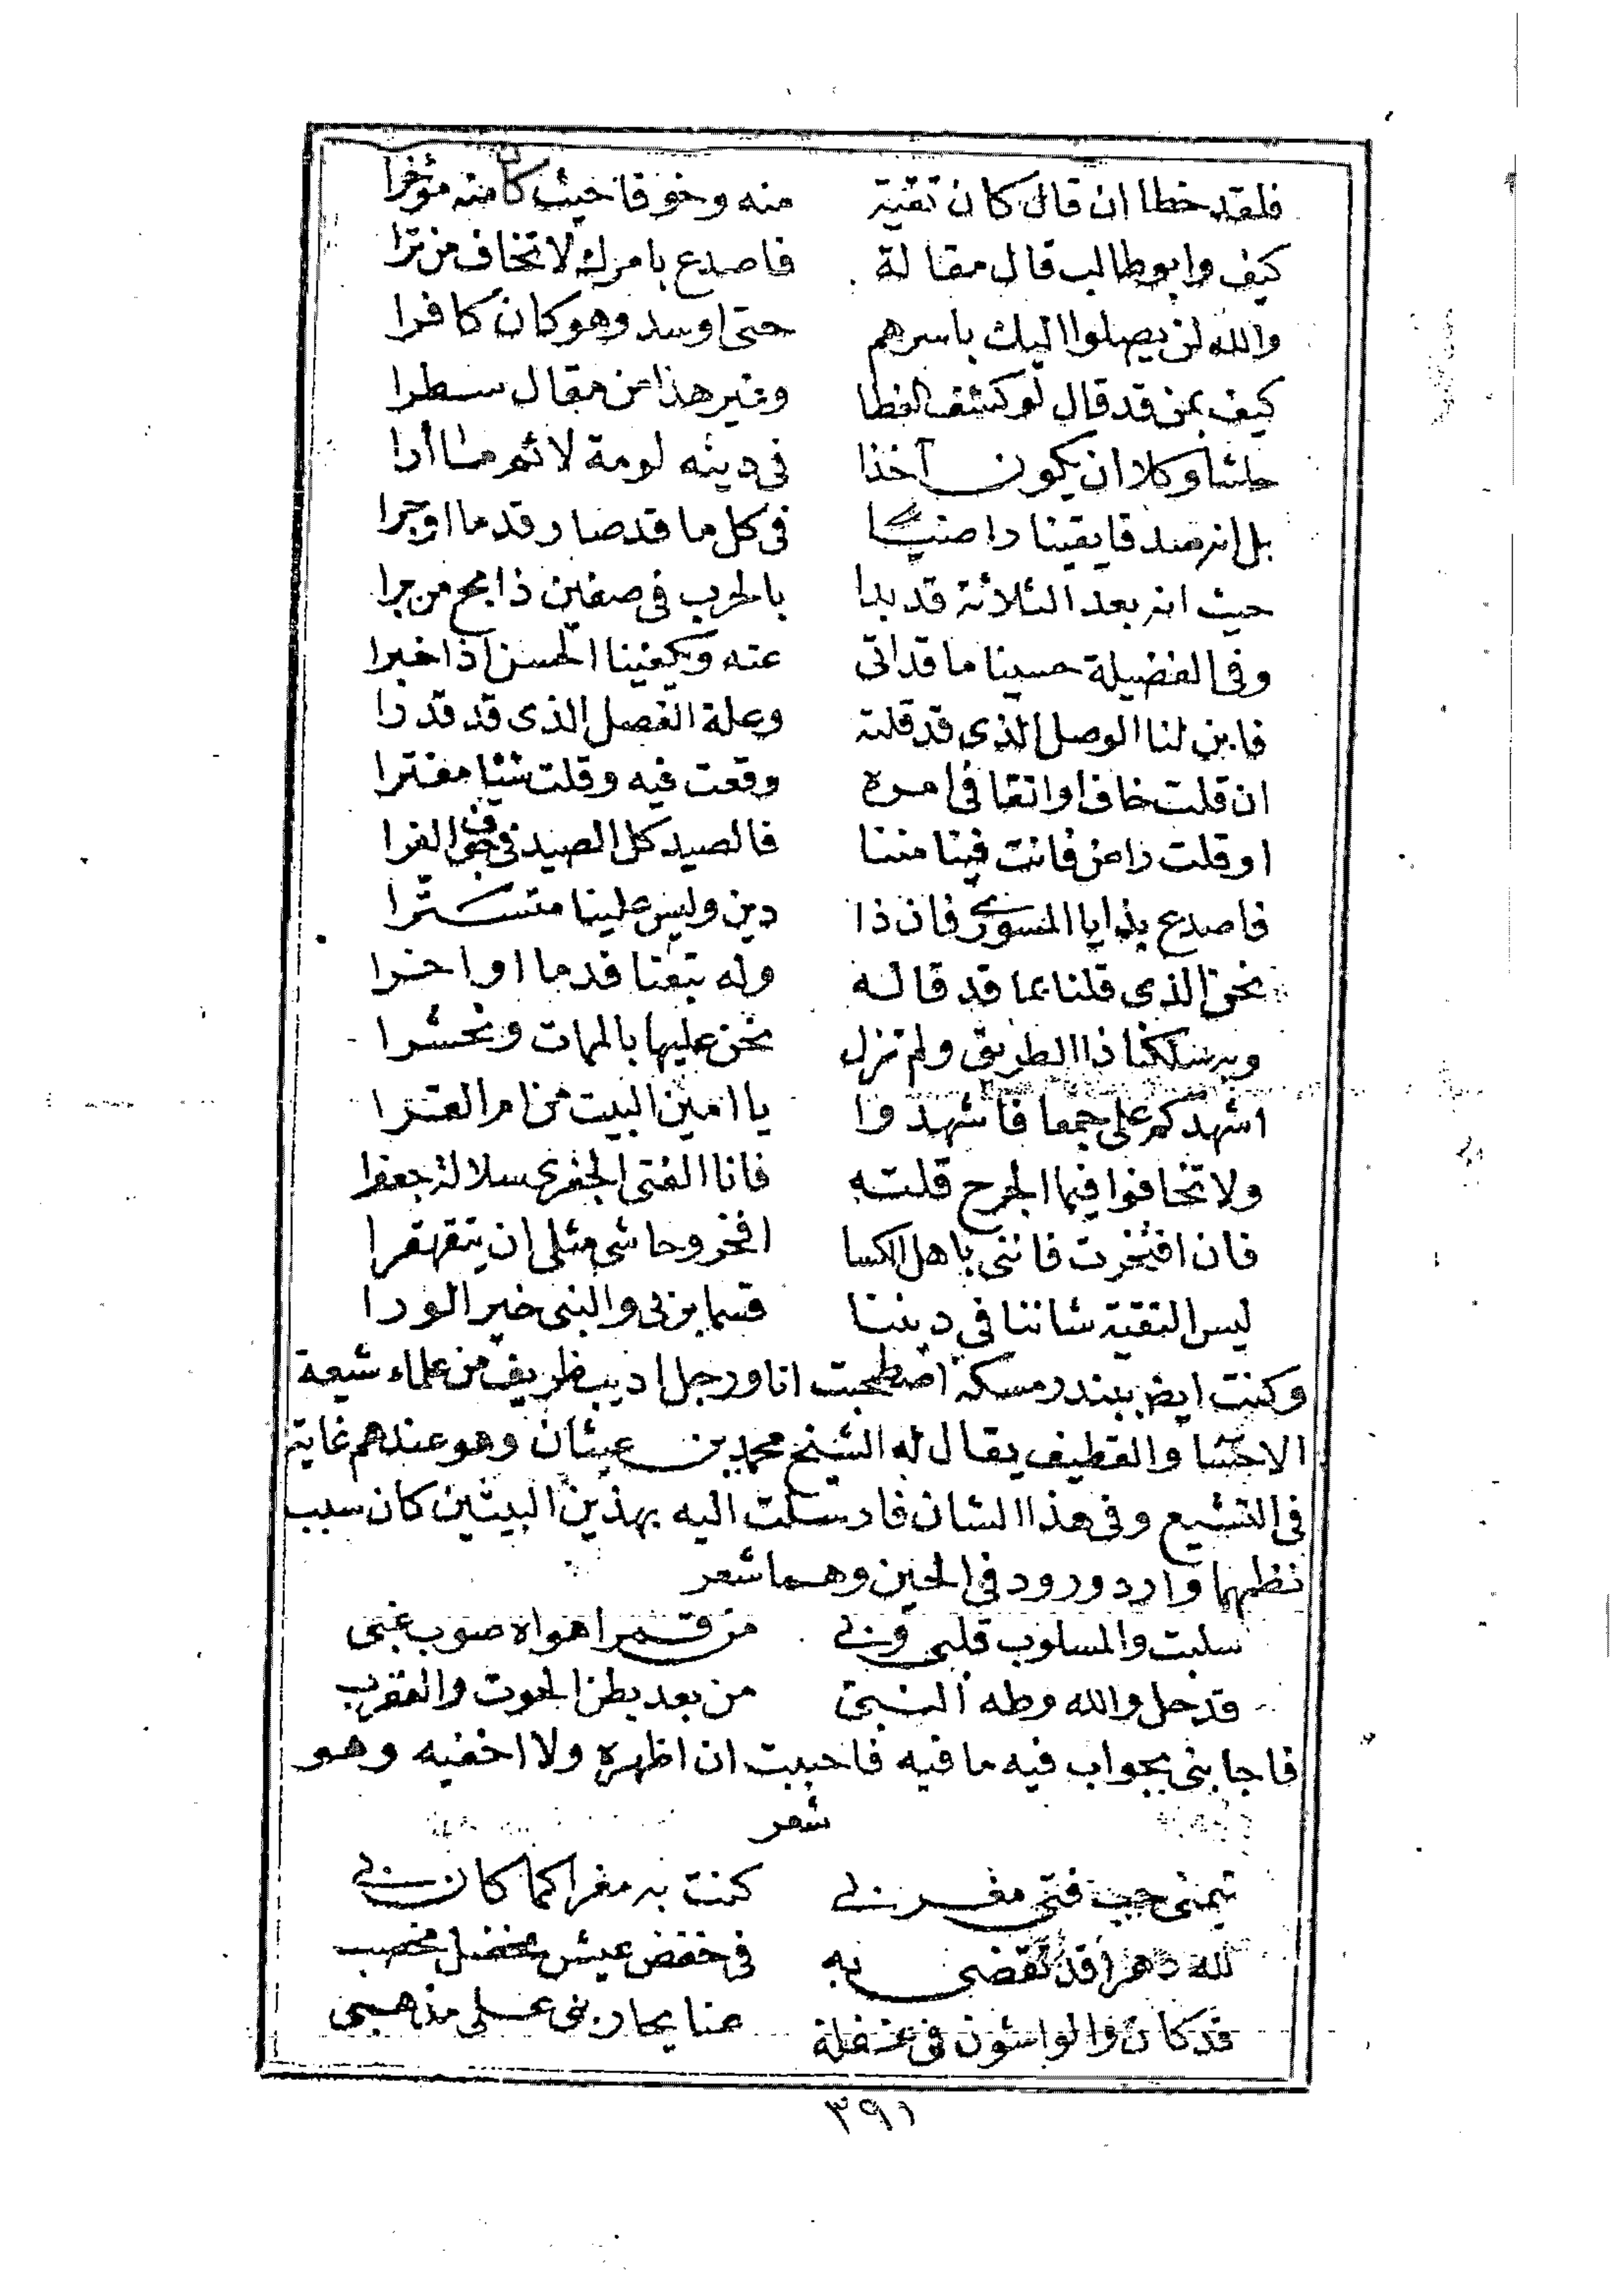 فلقد خطا ان قال كان تقية منه وخوفا حيث كان منه مؤخرا
كيف وابوطالب قال مقالة فاصدع بامرك لا تخاف من ترا
والله لن يصلوا اليك باسرهم حتى اوسد وهو كان كافرا
كيف بمن قد قال لو كشف الغطا وغير هذا من مقال سطرا
حاشا وكلا ان يكون آخذا في دينه لومة لائم ما أرا
بل انه صدقا يقينا راضيا في كل ما قد صار قدما اوجرا
حيث انه بعد الثلاثة قد بدا بالحرب في صفين ذا مح من جرا
وفي الفضيلة حسينا ما قد اتى عنه ويكفينا الحسن اذا خبرا
فابن لنا الوصل الذي قد قلته وعلة الفصل الذي قد قدرا
ان قلت خاف او اتقا في امره وقعت فيه وقلت شيئا مفترا
او قلت راض فانت فينا مننا فالصيد كل الصيد في جوف الفرا
فاصدع بذا يا المسوري فان ذا دين وليس علينا متسترا
نحن الذي قلنا بما قد قاله وله تبعنا قدما او اخرا
وبه سلكنا ذا الطريق ولم نزل نحن عليها بالممات ونحشرا
اشهدكم على جمعا فاشهدوا يا امين البيت من ام القرا
ولا تخافوا فيما الجرح قلته فانا الفتى الجفري سلالة جعفرا
فان افتخرت فانني باهل الكسا افخر وحاشى مثلي ان يتقهقرا
ليس التقية شاننا في ديننا قسما بربي والنبي خير الورا
وكنت ايض ببندر مسكه اصطحبت انا ورجل اديب ظريف من علماء شيعة
الاحسا والقطيف يقال له الشيخ محمد بن عيثان وهو عندهم غاية
في التشيع وفي هذا الشان فارسلت اليه بهذين البيتين كان سبب
نظمهما وارد ورود في الحين وهما شعر
سلبت والمسلوب قلبي وبي من قمر اهواه صوب غبي
قد حل والله وطه النبي من بعد بطن الحوت والعقرب
فاجابني بجواب فيه ما فيه فاحببت ان اظهره ولا اخفيه وهو
شعر
تيمني حب فتى مغربي كنت به مغرا كما كان بي
لله دهرا قد تقضى به في خفض عيش مخضل مخصب
قد كان والواشون في غفلة عنا يجاريني على مذهبي
٣٩١